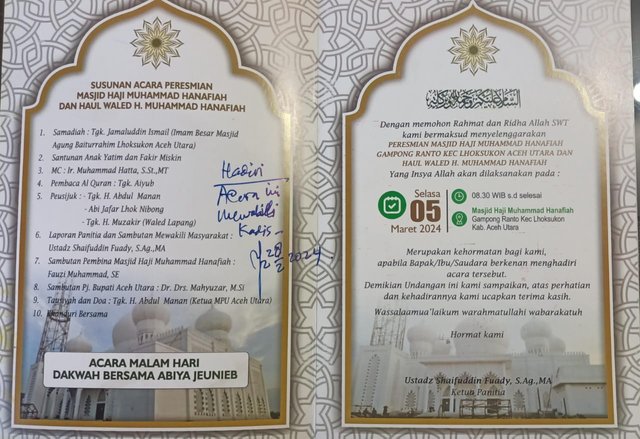 SUSUNAN ACARA PERESMIAN
MASJID HAJI MUHAMMAD HANAFIAH
DAN HAUL WALED H. MUHAMMAD HANAFIAH
1. Samadiah : Tgk. Jamaluddin Ismail (Imam Besar Masjid
Agung Baiturrahim Lhoksukon Aceh Utara)
2. Santunan Anak Yatim dan Fakir Miskin
3. MC : Ir. Muhammad Hatta, S.St.,MT
4. Pembaca Al Quran : Tgk. Aiyub
5. Peusijuk : - Tgk. H. Abdul Manan
- Abi Jafar Lhok Nibong
- Tgk. H. Muzakir (Waled Lapang)
6. Laporan Panitia dan Sambutan Mewakili Masyarakat :
Ustadz Shaifuddin Fuady, S.Ag.,MA
7. Sambutan Pembina Masjid Haji Muhammad Hanafiah :
Fauzi Muhammad, SE
8. Sambutan Pj. Bupati Aceh Utara : Dr. Drs. Mahyuzar, M.Si
9. Tausyiah dan Doa : Tgk. H. Abdul Manan (Ketua MPU Aceh Utara)
10. Khanduri Bersama
Hadiri
Acara ini
Mewakili
Kadis
28/2 2024
ACARA MALAM HARI
DAKWAH BERSAMA ABIYA JEUNIEB
السلام عليكم ورحمة الله وبركاته
Dengan memohon Rahmat dan Ridha Allah SWT
kami bermaksud menyelenggarakan
PERESMIAN MASJID HAJI MUHAMMAD HANAFIAH
GAMPONG RANTO KEC LHOKSUKON ACEH UTARA DAN
HAUL WALED H. MUHAMMAD HANAFIAH
Yang Insya Allah akan dilaksanakan pada :
Selasa
05
Maret 2024
08.30 WIB s.d selesai
Masjid Haji Muhammad Hanafiah
Gampong Ranto Kec Lhoksukon
Kab. Aceh Utara
Merupakan kehormatan bagi kami,
apabila Bapak/Ibu/Saudara berkenan menghadiri
acara tersebut.
Demikian Undangan ini kami sampaikan, atas perhatian
dan kehadirannya kami ucapkan terima kasih.
Wassalaamua'laikum warahmatullahi wabarakatuh
Hormat kami
Ustadz Shaifuddin Fuady, S.Ag.,MA
Ketua Panitia